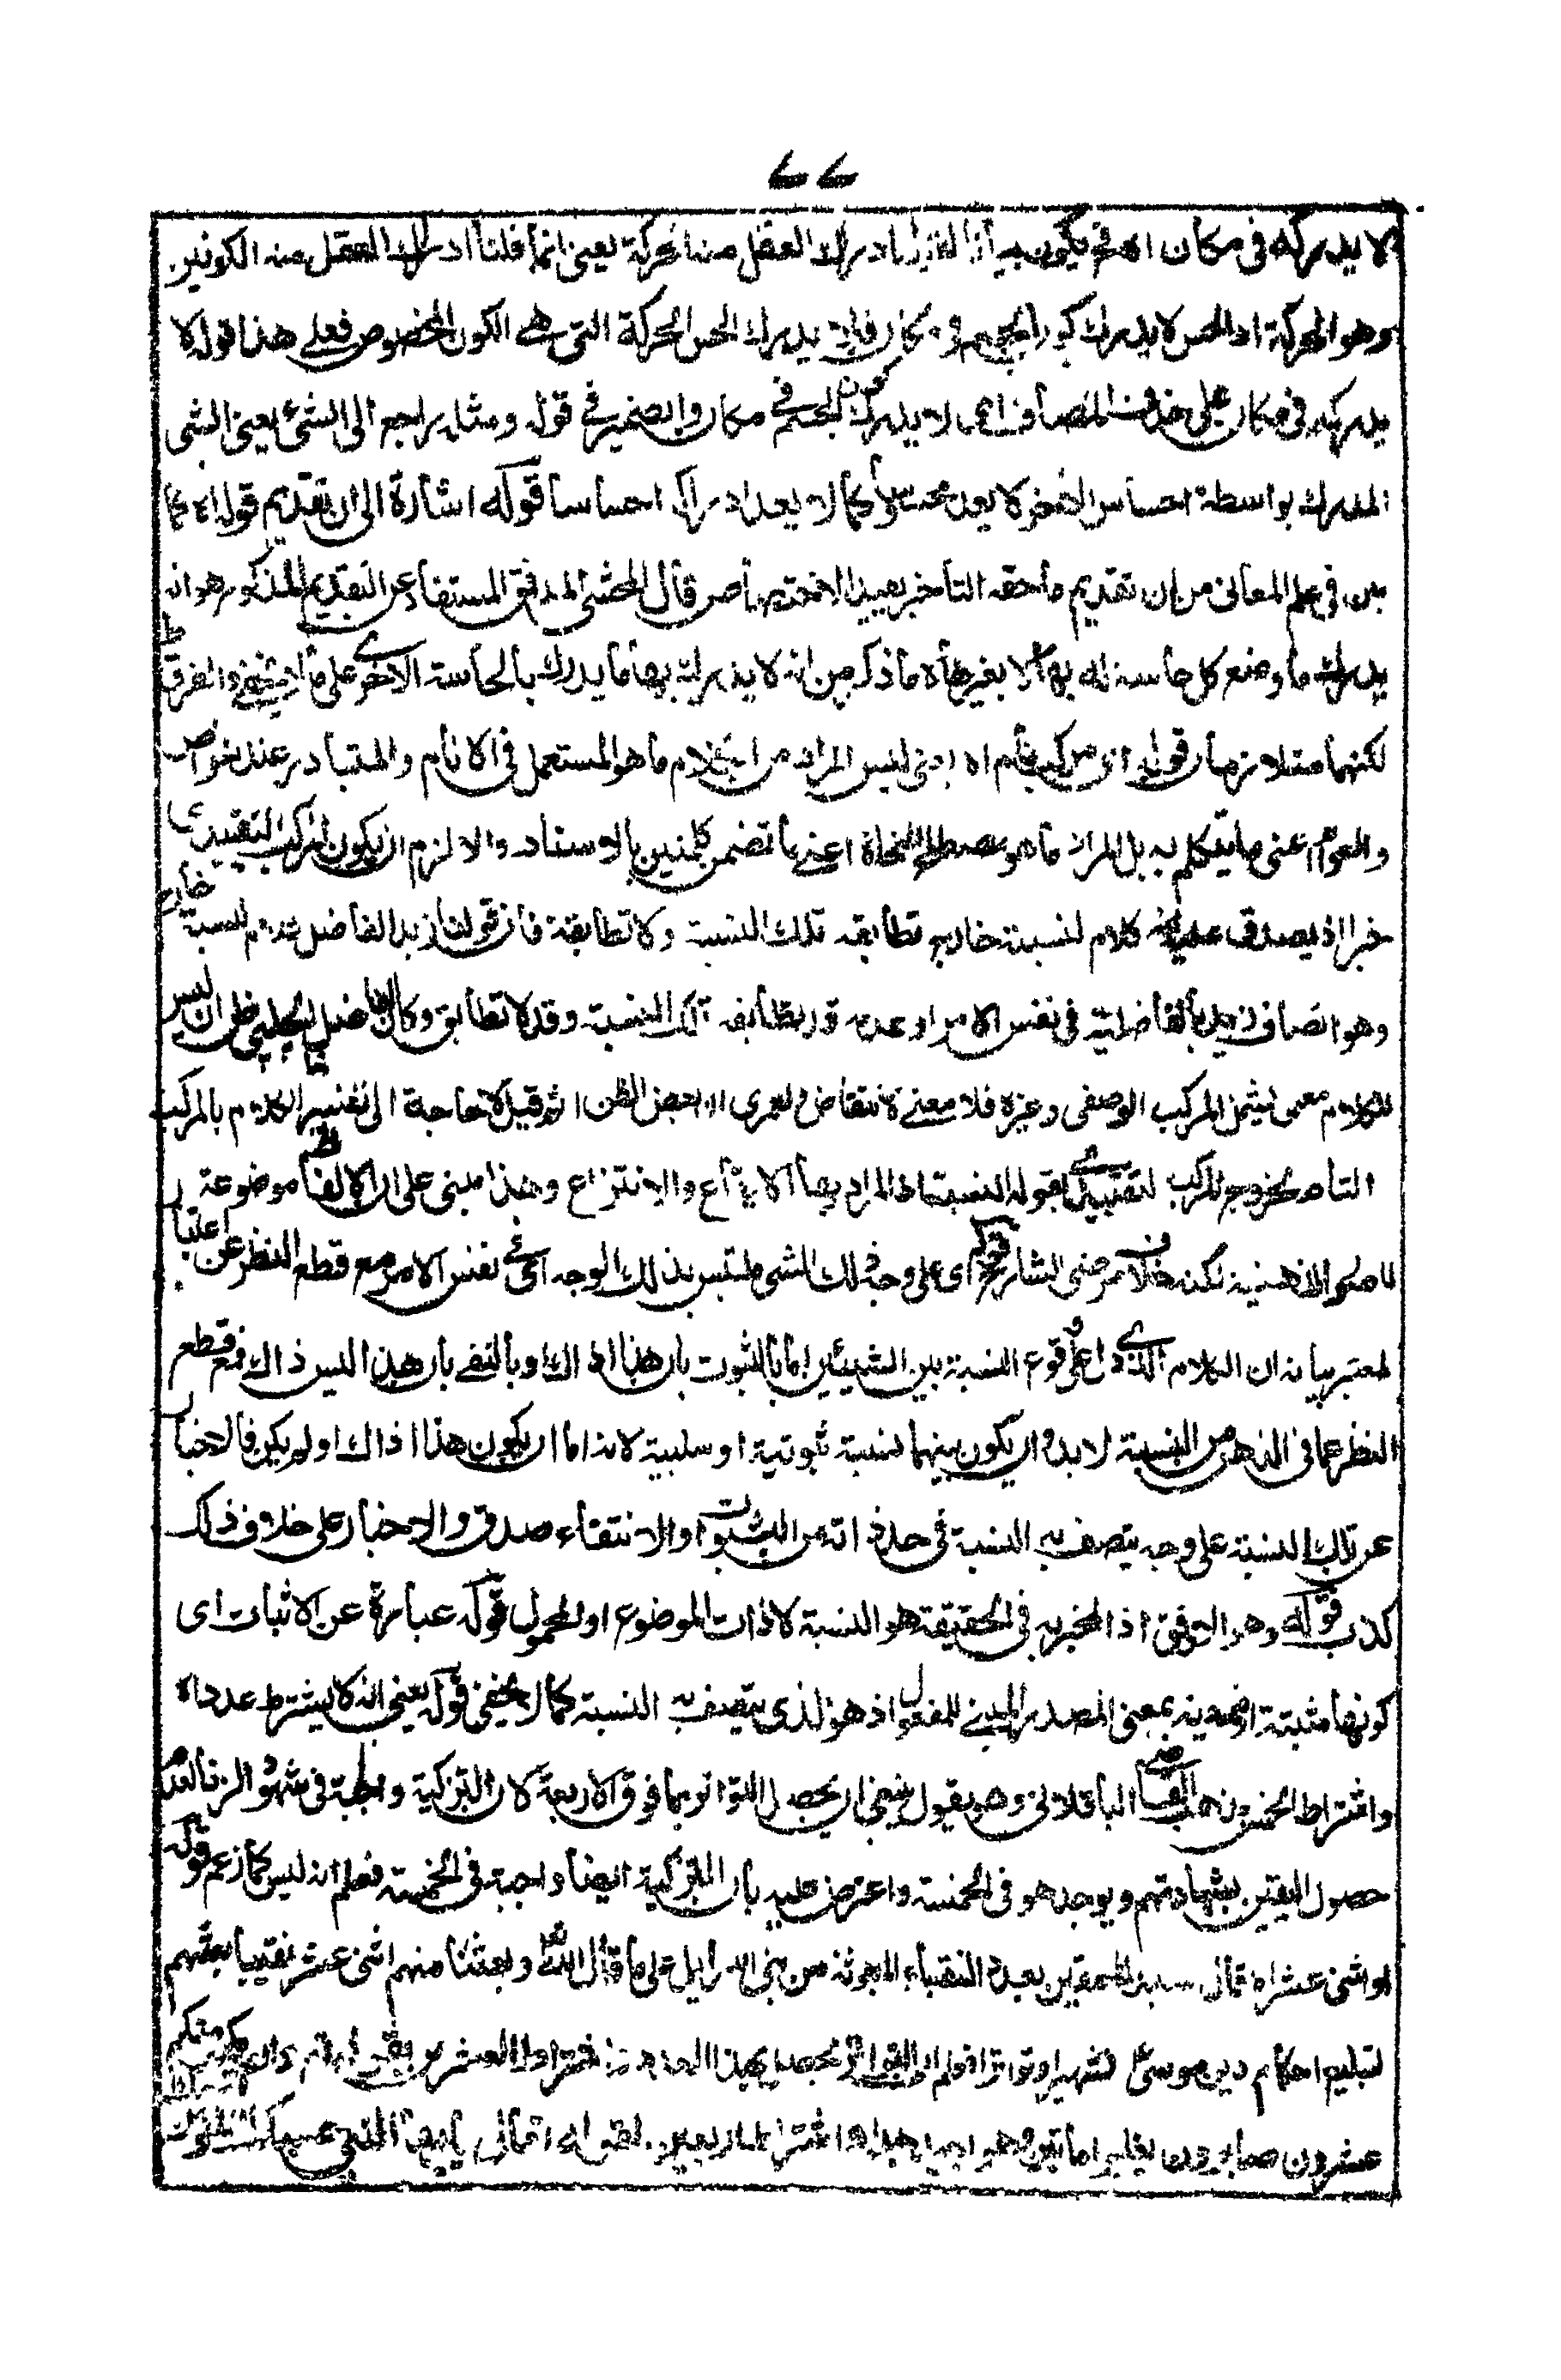 ٤٤
لا يدركه فى مكان اه فح يكون ادراك العقل منشأ الحركة يعنى انما قلنا ادراك العقل منه الكونين
وهو الحركة اذ الحس لا يدرك كون الجسم فى مكان فلا يدرك الحس الحركة التى هى الكون المخصوص فعلى هذا قوله لا
يدركه فى مكان على حذف المضاف اى لا يدرك كون الجسم فى مكان والضمير فى قوله ومثله راجع الى الشئ يعنى الشى
المدرك بواسطة احساس الاخر لا يعد محسوسا كما لا يعد ادراكه احساسا قوله اشارة الى ان تقديم قوله اه لما
بين فى علم المعانى من ان تقديم ما حقه التأخير يفيد الاختصاص قال المحشى المدقق المستفاد عن التقديم المذكور هو انه
يدرك ما وضع كل حاسة له بها لا بغيرها ما ذكر من انه لا يدرك بها ما يدرك بالحاسة الاخرى على ما لا يخفى والفرق ظ
لكنهما متلازمان قوله اى مركب تام اه يعنى ليس المراد من الكلام ما هو المستعمل فى الانام والمتبادر عند خواص
والعوام اعنى ما يتكلم به بل المراد ما هو مصطلح النحاة اعنى ما تضمن كلمتين بالاسناد والا لزم ان يكون المركب التقييدى
خبرا اذ يصدق عليه انه كلام لنسبته خارج تطابقه تلك النسبة ولا تطابقه فان قولنا زيد الفاضل كلام لنسبته خارج
وهو اتصاف زيد بالفاضلية فى نفس الامر او عدمه قد تطابقه تلك النسبة وقد لا تطابق وكان الفاضل الچلپى ظن ان ليس
للكلام معنى يشمل المركب الوصفى وغيره فلا معنى للانتقاض ولعمرى ان بعض الظن اثم قيل لا حاجة الى تفسير الكلام بالمركب
التام لخروج المركب التقييدى بقوله لنسبته اذ المراد بها الايقاع والانتزاع وهذا مبنى على ان الالفاظ موضوعة
للصور الذهنية لكنه خلاف مرضى الشارح قوله اى على وجه ذلك الشى ملتبس بذلك الوجه اى فى نفس الامر مع قطع النظر عن اعتبار
المعتبر بيانه ان الكلام الذى دل على وقوع النسبة بين الشيئين اما بالثبوت بان هذا ذاك او بالنفى بان هذا ليس ذاك فمع قطع
النظر عما فى الذهن من النسبة لا بد وان يكون بينهما نسبة ثبوتية او سلبية لانه اما ان يكون هذا اذاك او لم يكن فالاخبار
عن تلك النسبة على وجه يتصف به النسبة فى حد ذاته من الثبوت او الانتفاء صدق والاخبار على خلاف ذلك
كذب قوله وهو الاوفق اذ المخبر به فى الحقيقة هو النسبة لا ذات الموضوع او المحمول قوله عبارة عن الاثبات اى
كونها مثبتة او منفية بمعنى المصدر المبنى للمفعول اذ هو الذى يتصف به النسبة كما لا يخفى قوله يعنى انه لا يشترط عدد اه
واشتراط الخمسة القاضى الباقلانى وهو يقول ينبغى ان يحصل التواتر بما فوق الاربعة لان التزكية واجبة فى شهود الزنا لعدم
حصول اليقين بشهادتهم ويوجد هو فى الخمسة واعترض عليه بان التزكية ايضا واجبة فى الخمسة فعلم انه ليس كما زعم قوله
او اثنى عشر اه قال بعدد النقباء المبعوثة من بنى اسرائيل على ما قال الله تعالى وبعثنا منهم اثنى عشر نقيبا بعثهم
لتبليغ احكام دين موسى فعلم ان التواتر يحصل بهذا العدد واشتراط العشرين بقوله تعالى ان يكن منكم
عشرون صابرون يغلبوا مائتين واشتراط اربعين لقوله تعالى يايها النبى حسبك الله ومن